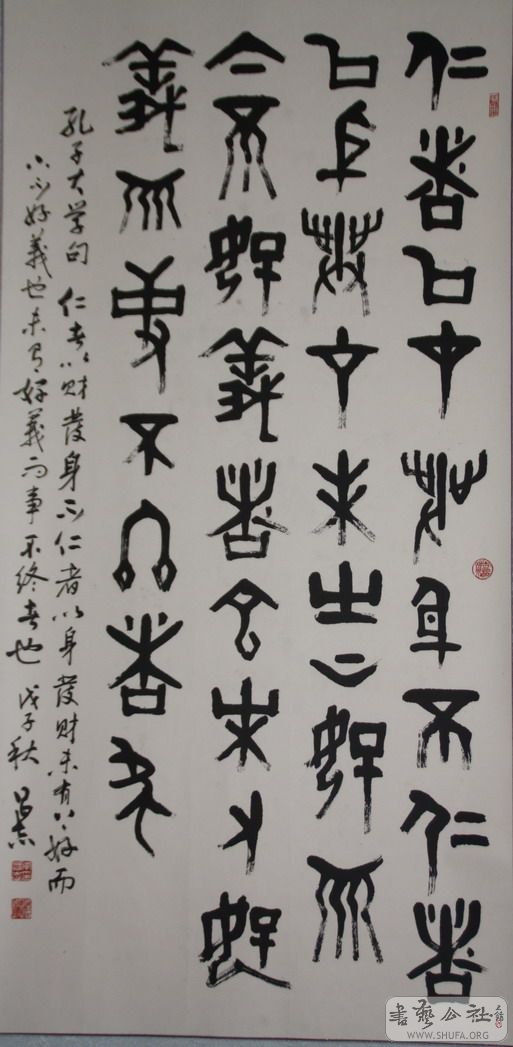 仁者以才發身不仁者
以身發才未有上好而
下不好義者也未又好
義而事不終者也
孔子大学句 仁者以财發身不仁者以身發财未有上好而
下不好義也未有好義而事不终者也 戊子秋
書藝公社
WWW.SHUFA.ORG